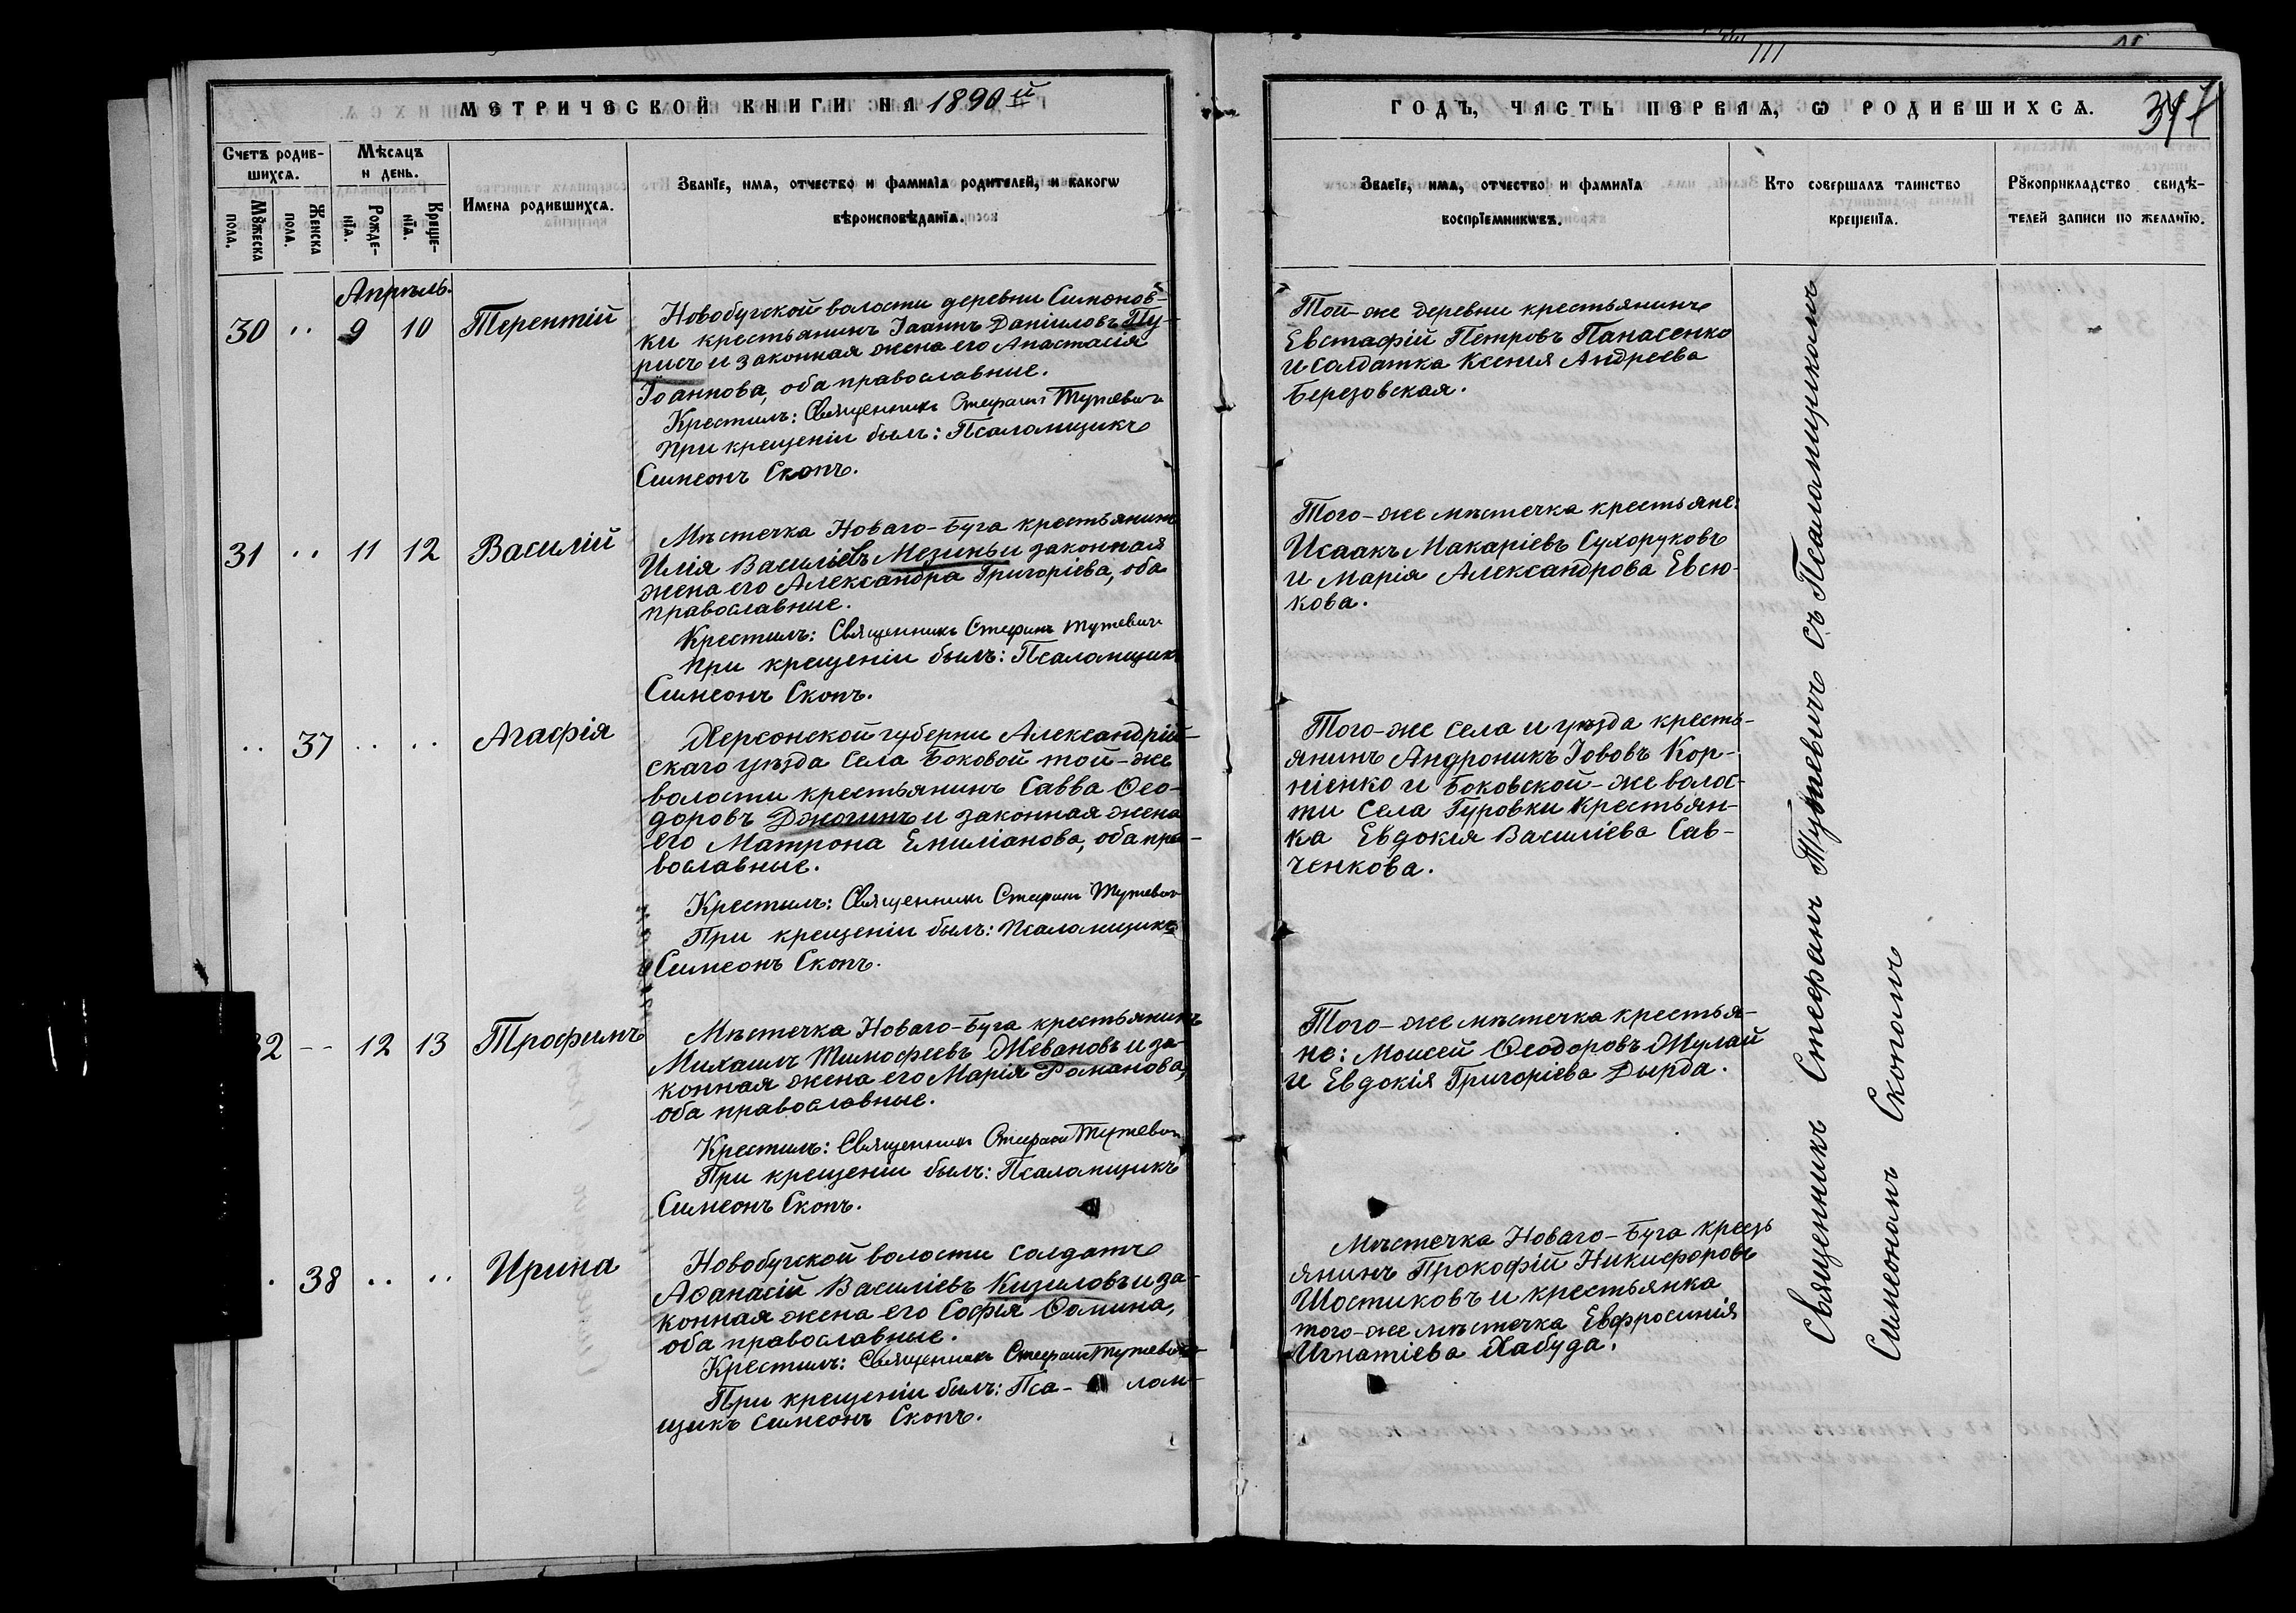 111
МЕТРИЧЕСКОЙ КНИГИ НА 1890й
ГОДЪ, ЧАСТЬ ПЕРВАѦ, Ѡ РОДИВШИХСѦ.
347
Счетъ родив-
шихсѧ.
Мѣсѧцъ
и день.
Мꙋжеска
пола.
Женска
пола.
Рожде-
нїѧ.
Креще-
нїѧ.
Имена родившихсѧ.
Званїе, имѧ, отчество и фамилїѧ родителей, и какогѡ
вѣроисповѣданїѧ.
Званїе, имѧ, отчество и фамилїѧ
воспрїемникѡвъ.
Кто совершалъ таинство
крещенїѧ.
Рꙋкоприкладство свидѣ-
телей записи по желанїю.
Апрѣль.
30 .. 9 10 Терентій
Новобугской волости деревни Симонов-
ки крестьянинъ Іоаннъ Даніиловъ Пу-
рисъ и законная жена его Анастасія
Іоаннова, оба православные.
Крестилъ: Священникъ Стефанъ Тужевичъ
При крещеніи былъ: Псаломщикъ
Симеонъ Скопъ.
Той-же деревни крестьянинъ
Евстафій Петровъ Панасенко
и солдатка Ксенія Андреева
Березовская.
31 .. 11 12 Василій
Мѣстечка Новаго-Буга крестьянинъ
Илія Василіевъ Мезинъ и законная
жена его Александра Григоріева, оба
православные.
Крестилъ: Священникъ Стефанъ Тужевичъ
При крещеніи былъ: Псаломщикъ
Симеонъ Скопъ.
Того-же мѣстечка крестьяне:
Исаакъ Макаріевъ Сухоруковъ
и Марія Александрова Евсю-
кова.
.. 37 .. .. Агафія
Херсонской губерни Александрій-
скаго уѣзда села Боковой той-же
волости крестьянинъ Савва Ѳео-
доровъ Дрюгинъ и законная жена
его Матрона Емиліанова, оба пра-
вославные.
Крестилъ: Священникъ Стефанъ Тужевичъ
При крещеніи былъ: Псаломщикъ
Симеонъ Скопъ.
Того-же села и уѣзда кресть-
янинъ Андроникъ Іововъ Кор-
ніенко и Боковской-же волос-
ти села Гуровки крестьян-
ка Евдокія Василіева Сав-
ченкова.
32 -- 12 13 Трофимъ
Мѣстечка Новаго-Буга крестьянинъ
Михаилъ Тимофеевъ Живановъ и за-
конная жена его Марія Романова,
оба православные.
Крестилъ: Священникъ Стефанъ Тужевичъ
При крещеніи былъ: Псаломщикъ
Симеонъ Скопъ.
Того-же мѣстечка крестья-
не: Моисей Ѳеодоровъ Жулай
и Евдокія Григоріева Дырда.
. 38 .. .. Ирина
Новобугской волости солдатъ
Аѳанасій Василіевъ Кизиловъ и за-
конная жена его Софія Ѳомина,
оба православные.
Крестилъ: Священникъ Стефанъ Тужевичъ
При крещеніи былъ: Пса- лом-
щикъ Симеонъ Скопъ.
Мѣстечка Новаго-Буга кресть
янинъ Прокофій Никифоровъ
Шостиковъ и крестьянка
того-же мѣстечка Евфросинія
Игнатіева Хабуда.
Священникъ Стефанъ Тужевичъ съ Псаломщикомъ
Симеономъ Скопомъ